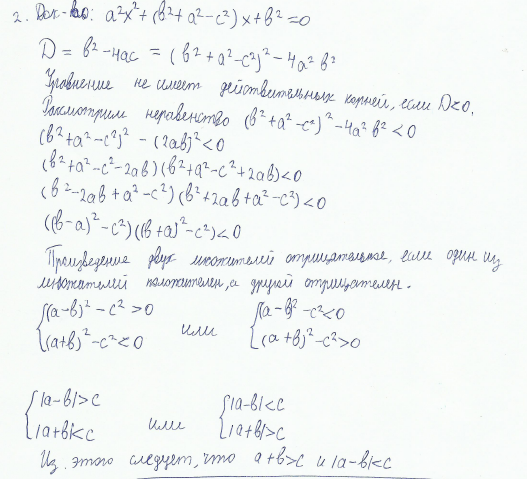 2. Док-во: a²x²+(b²+a²-c²)x+b²=0
D = b²-4ac = (b²+a²-c²)²-4a²b²
Уравнение не имеет действительных корней, если D<0.
Рассмотрим неравенство (b²+a²-c²)²-4a²b²<0
(b²+a²-c²)² - (2ab)²<0
(b²+a²-c²-2ab)(b²+a²-c²+2ab)<0
(b²-2ab+a²-c²)(b²+2ab+a²-c²)<0
((b-a)²-c²)((b+a)²-c²)<0
Произведение двух множителей отрицательное, если один из
множителей положителен, а другой отрицателен.
{(a-b)²-c²>0 или {(a-b)²-c²<0
(a+b)²-c²<0 (a+b)²-c²>0
{|a-b|>c или {|a-b|<c
|a+b|<c |a+b|>c
Из этого следует, что a+b>c и |a-b|<c